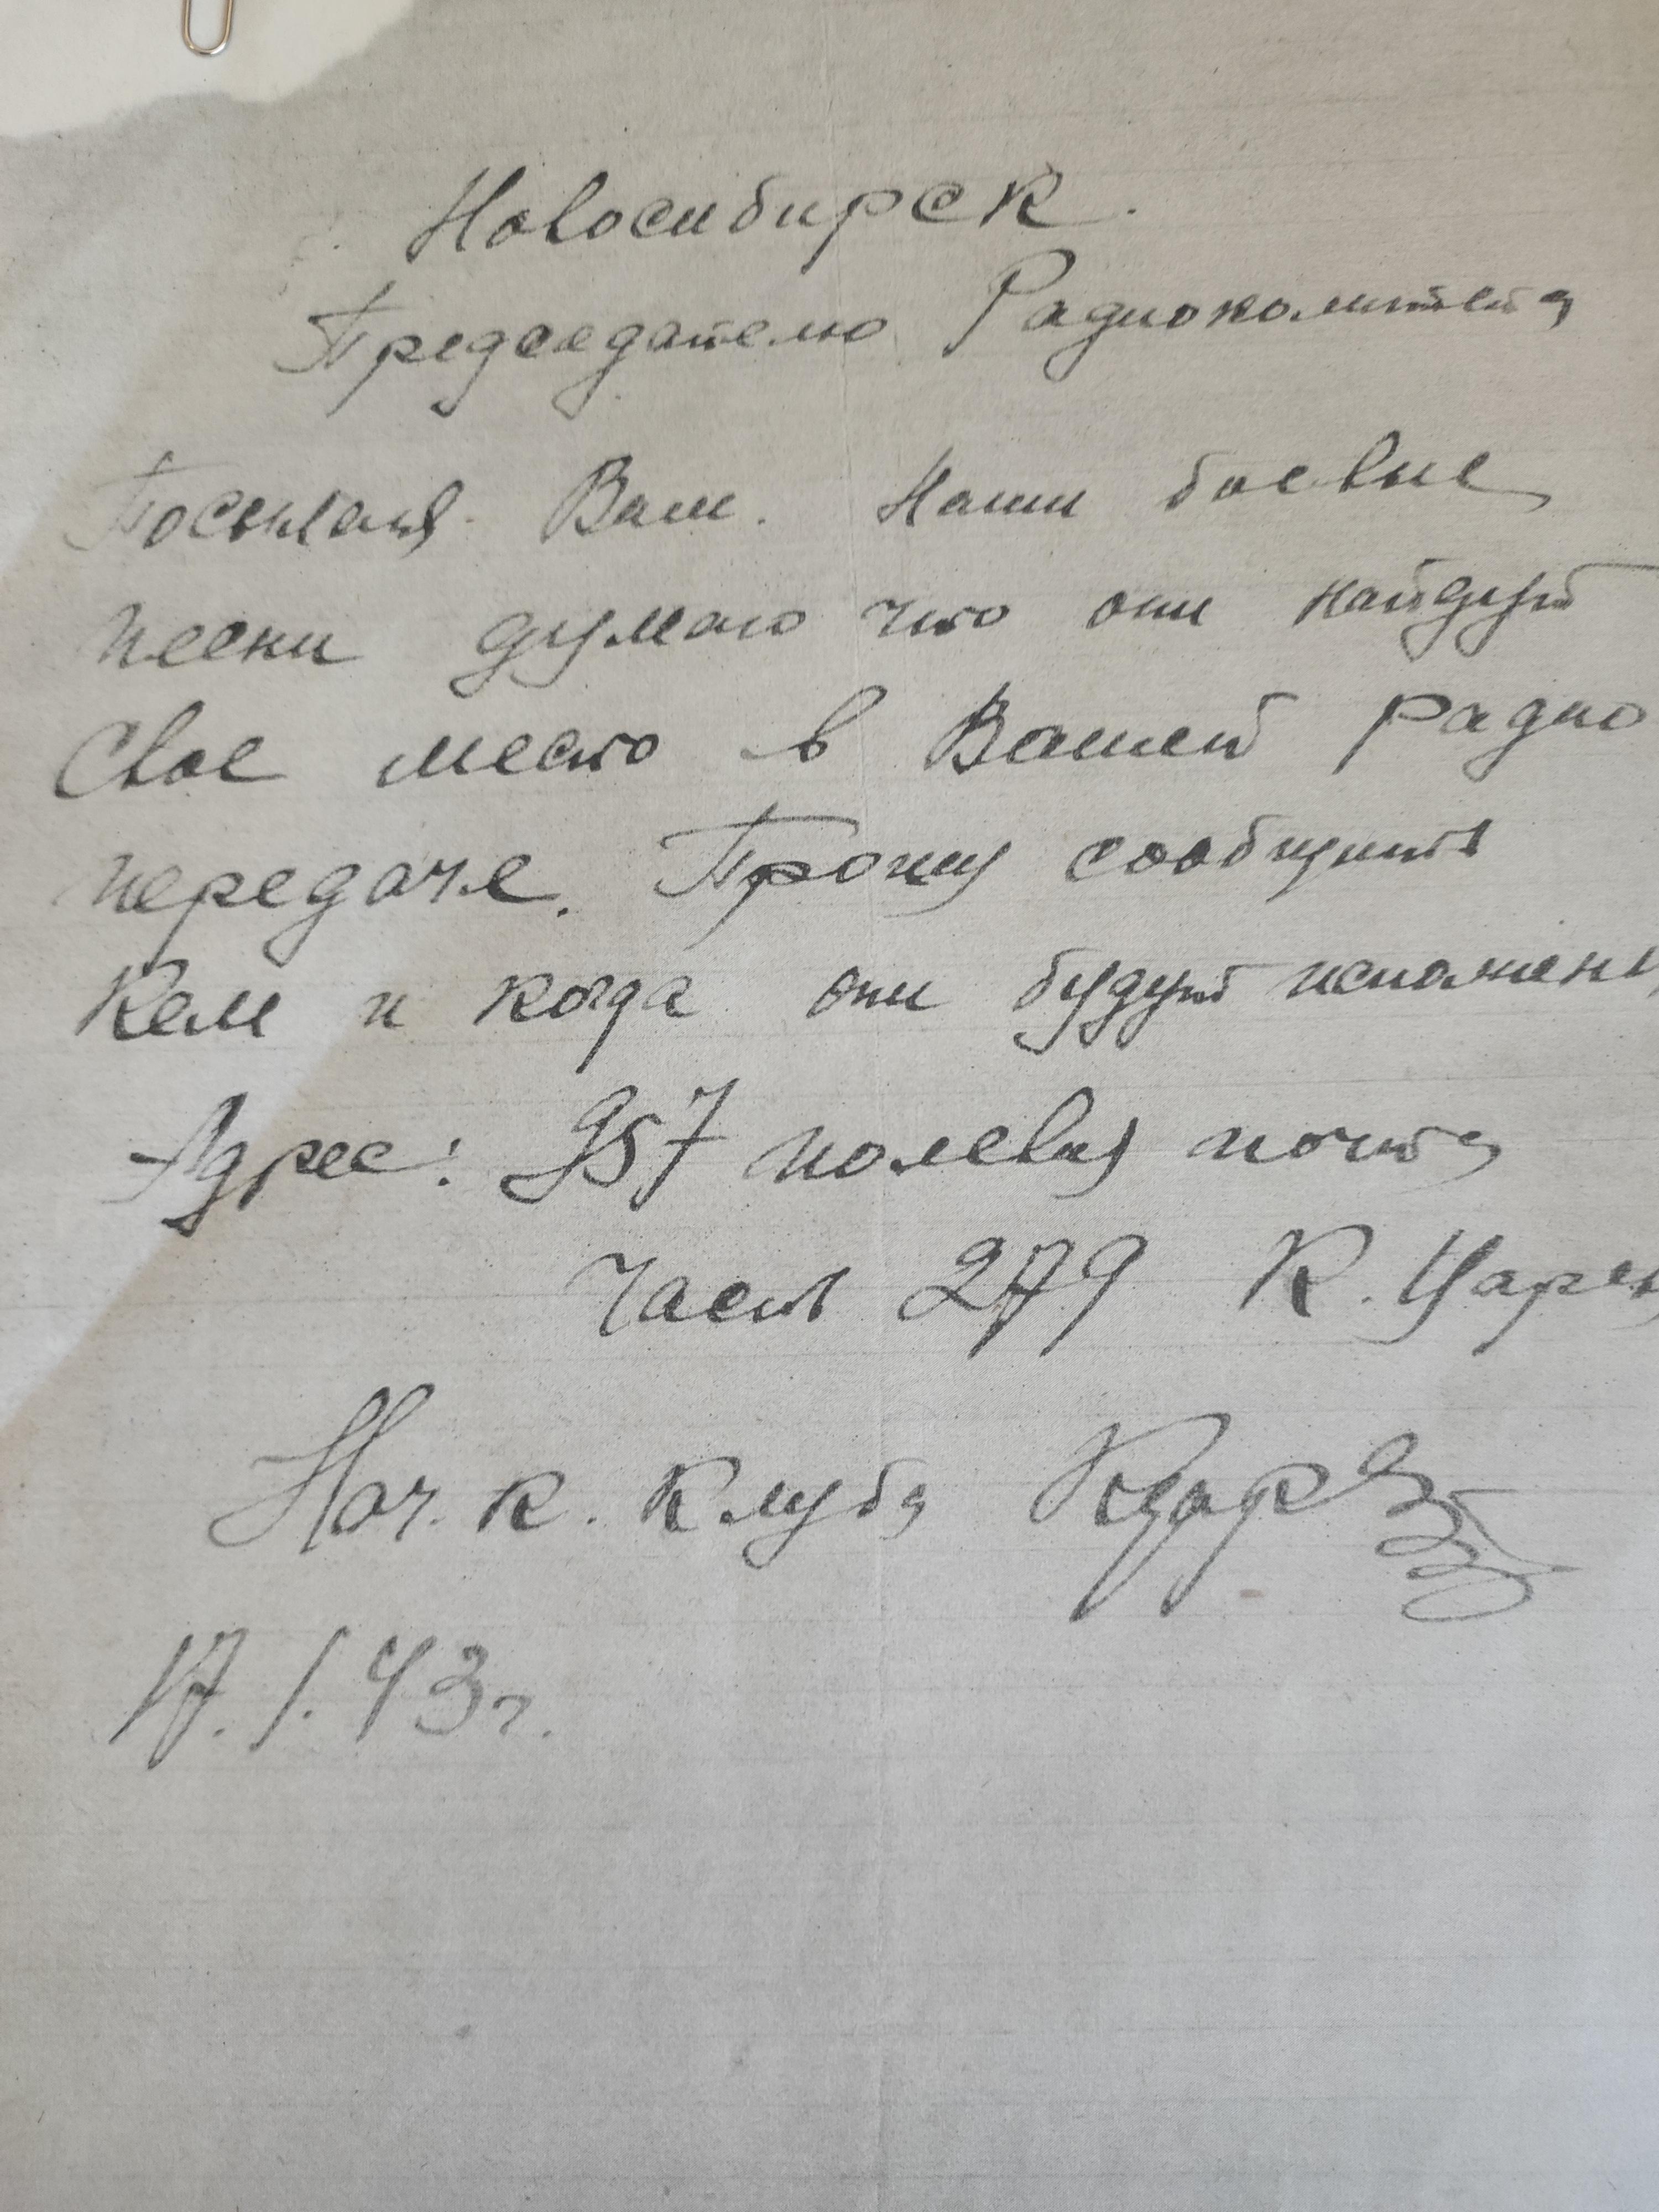 Новосибирск.
Председателю Радиокомитета
Посылая Вам. Наши боевые
песни думаю что они найдут
Свое место в Вашей радио
передаче. Прошу сообщить
Кем и когда они будут исполнены
Адрес: 957 полевая почта
Часть 279 К.
Нач. к. Клуба
17. 1. 43 г.